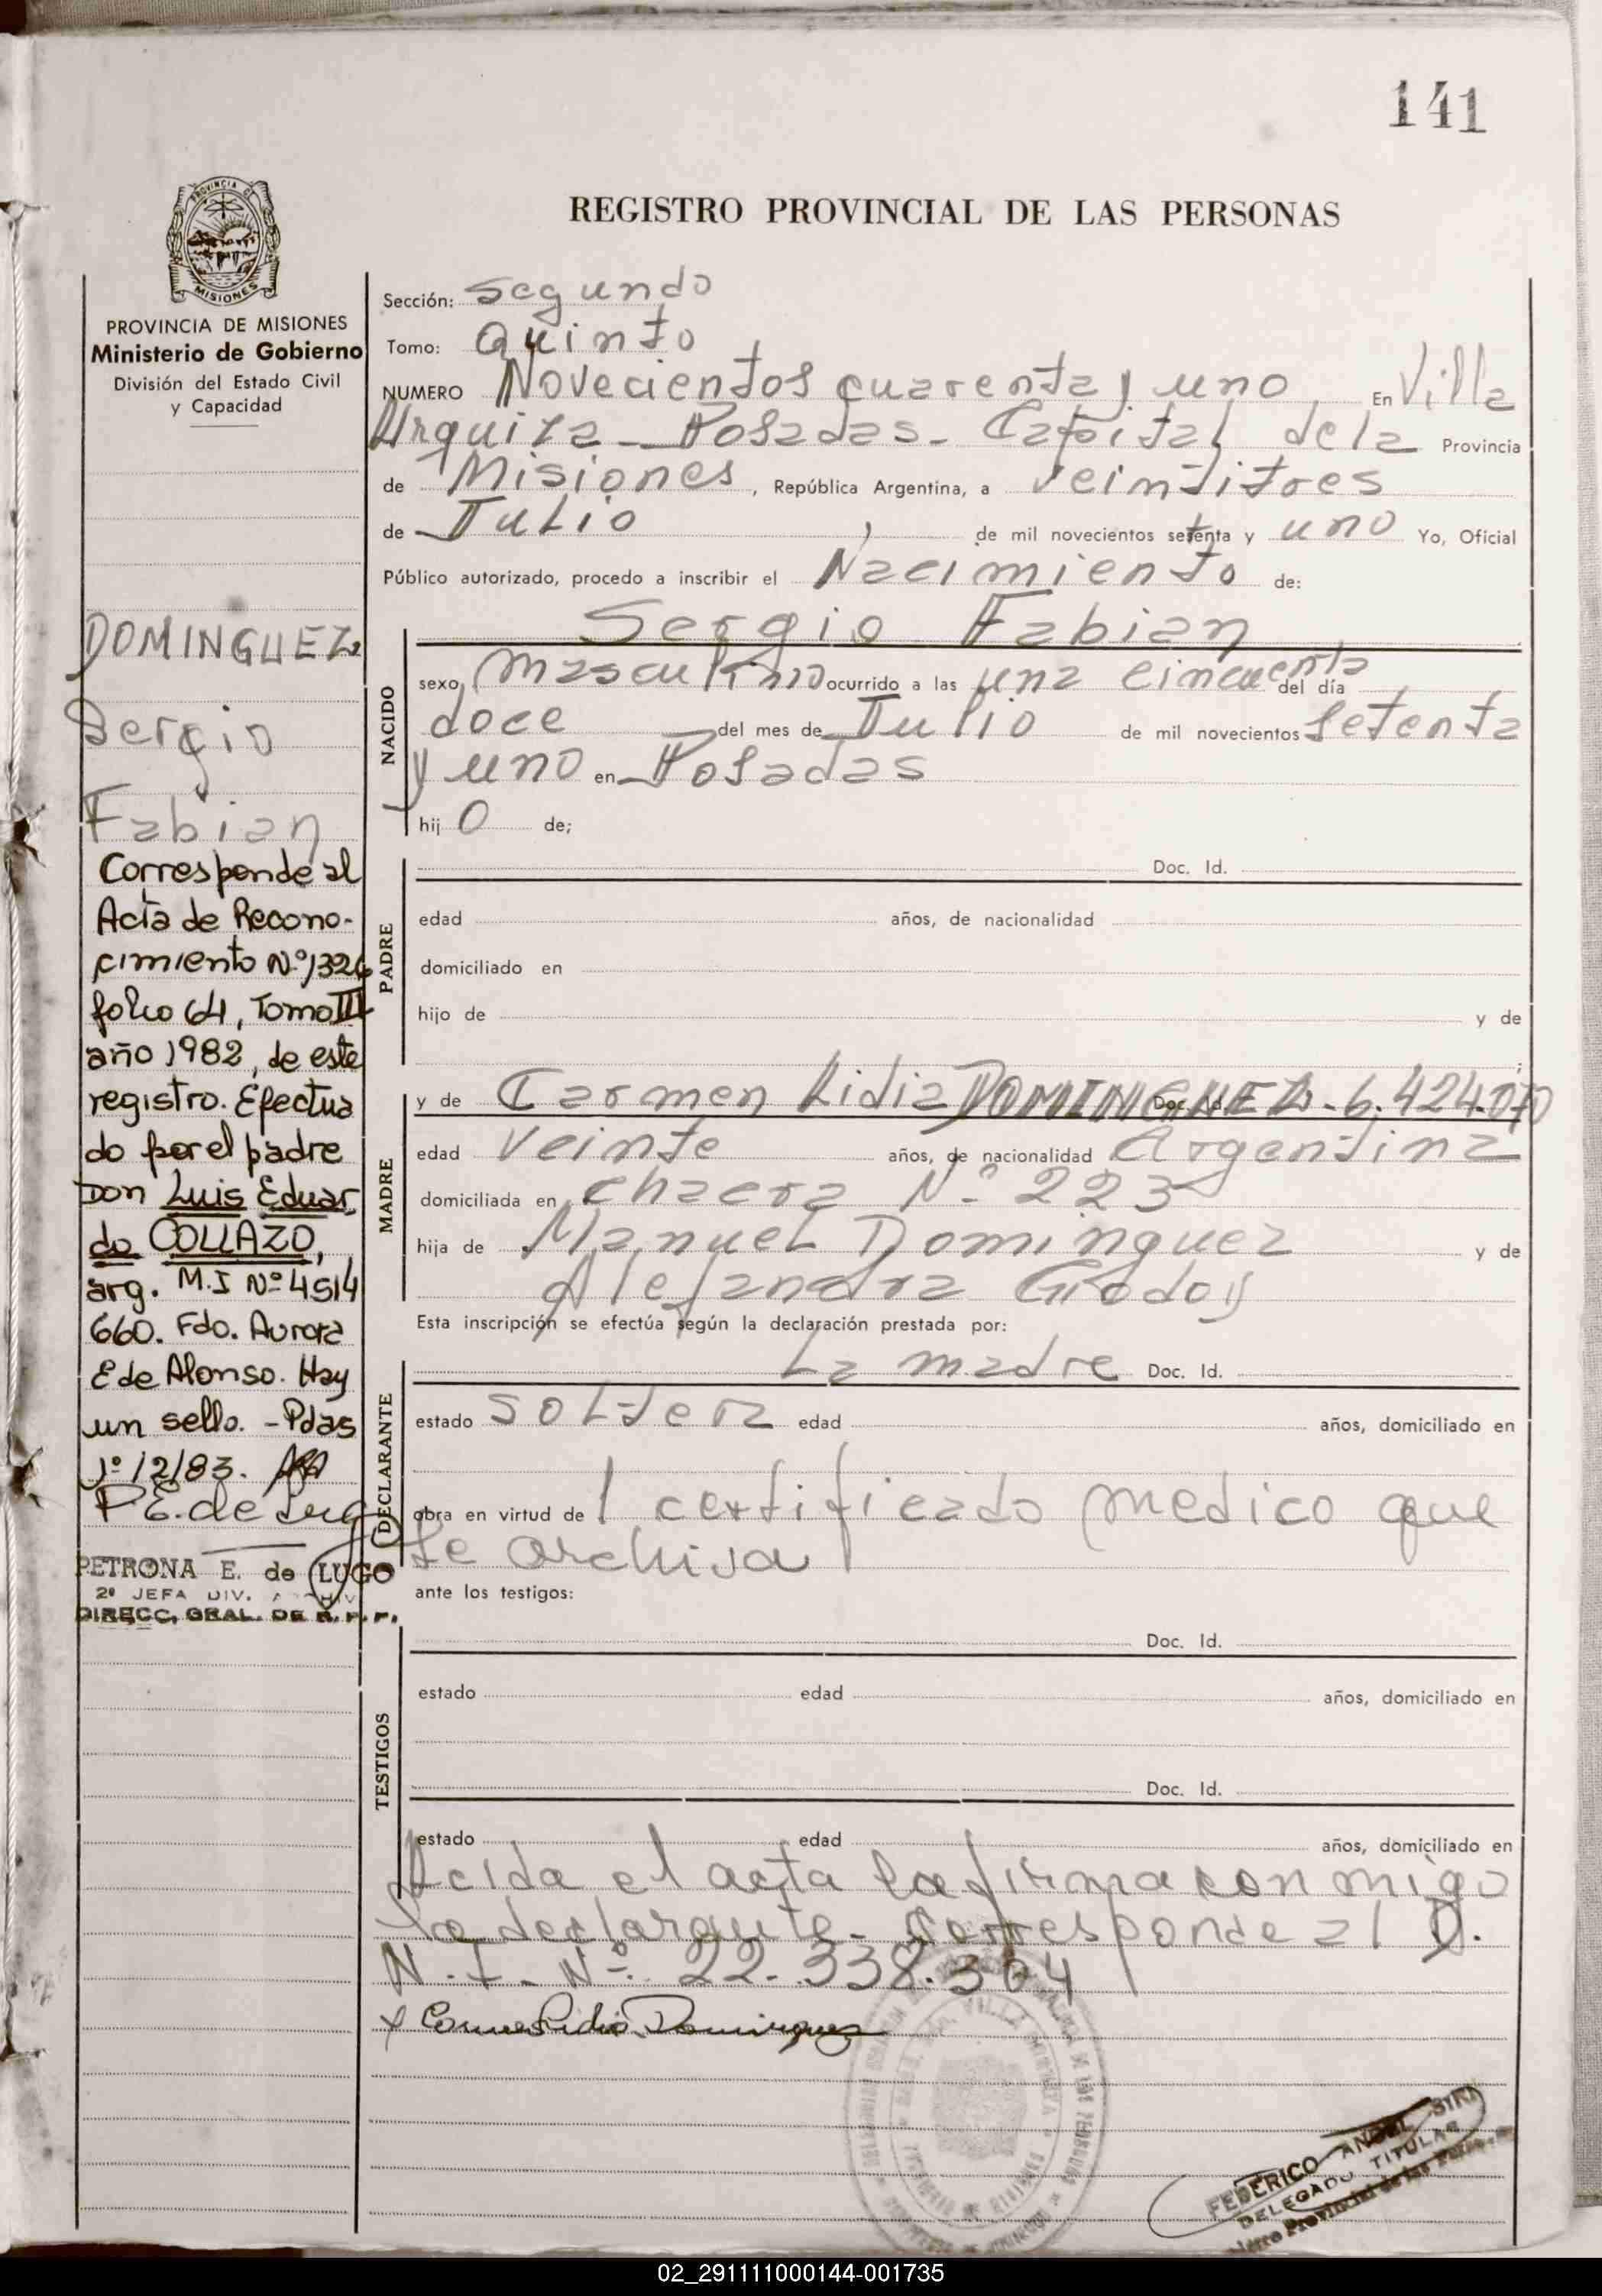 141
REGISTRO PROVINCIAL DE LAS PERSONAS
PROVINCIA DE MISIONES
PROVINCIA DE MISIONES
Ministerio de Gobierno
División del Estado Civil
y Capacidad
Sección: Segundo
Tomo: Quinto
NUMERO Novecientos cuarenta y uno En Villa
Urquiza - Posadas - Capital de la Provincia
de Misiones, República Argentina, a veintitres
de Julio, de mil novecientos setenta y uno Yo, Oficial
Público autorizado, procedo a inscribir el Nacimiento de:
Sergio Fabian
NACIDO
sexo masculino ocurrido a las una cincuenta del día
doce del mes de Julio de mil novecientos setenta
y uno en Posadas
hij o de;
PADRE
Doc. Id.
edad años, de nacionalidad
domiciliado en
hijo de y de
;
MADRE
y de Carmen Lidia DOMINGUEZ Doc. Id. - 6.424.070
edad veinte años, de nacionalidad Argentina
domiciliada en chacra Nº 223
hija de Manuel Dominguez y de
Alejandra Godoy
Esta inscripción se efectúa según la declaración prestada por:
DECLARANTE
La madre Doc. Id.
estado soltera edad años, domiciliado en
obra en virtud de 1 certificado medico que
se archiva
ante los testigos:
TESTIGOS
Doc. Id.
estado edad años, domiciliado en
Doc. Id.
estado edad años, domiciliado en
Leida el acta la firma con migo
la declarante - Corresponde al D.
N.I. Nº 22.338.364
x Carmen Lidia Dominguez
DOMINGUEZ
Sergio
Fabian
Corresponde al
Acta de Recono-
cimiento Nº 1324
folio 64, Tomo III
año 1982, de este
registro. Efectua
do por el padre
Don Luis Eduar
do COLLAZO,
arg. M.I Nº 4514
660. Fdo. Aurora
E de Alonso. Hay
un sello. - Pdas
1º/2/83.
P E. de Lugo
PETRONA E. de LUGO
2ª JEFA DIV.
DIRECC. GRAL. DE R. P. P.
FEDERICO ANGEL
DELEGADO TITULAR
Provincial de las
02_291111000144-001735